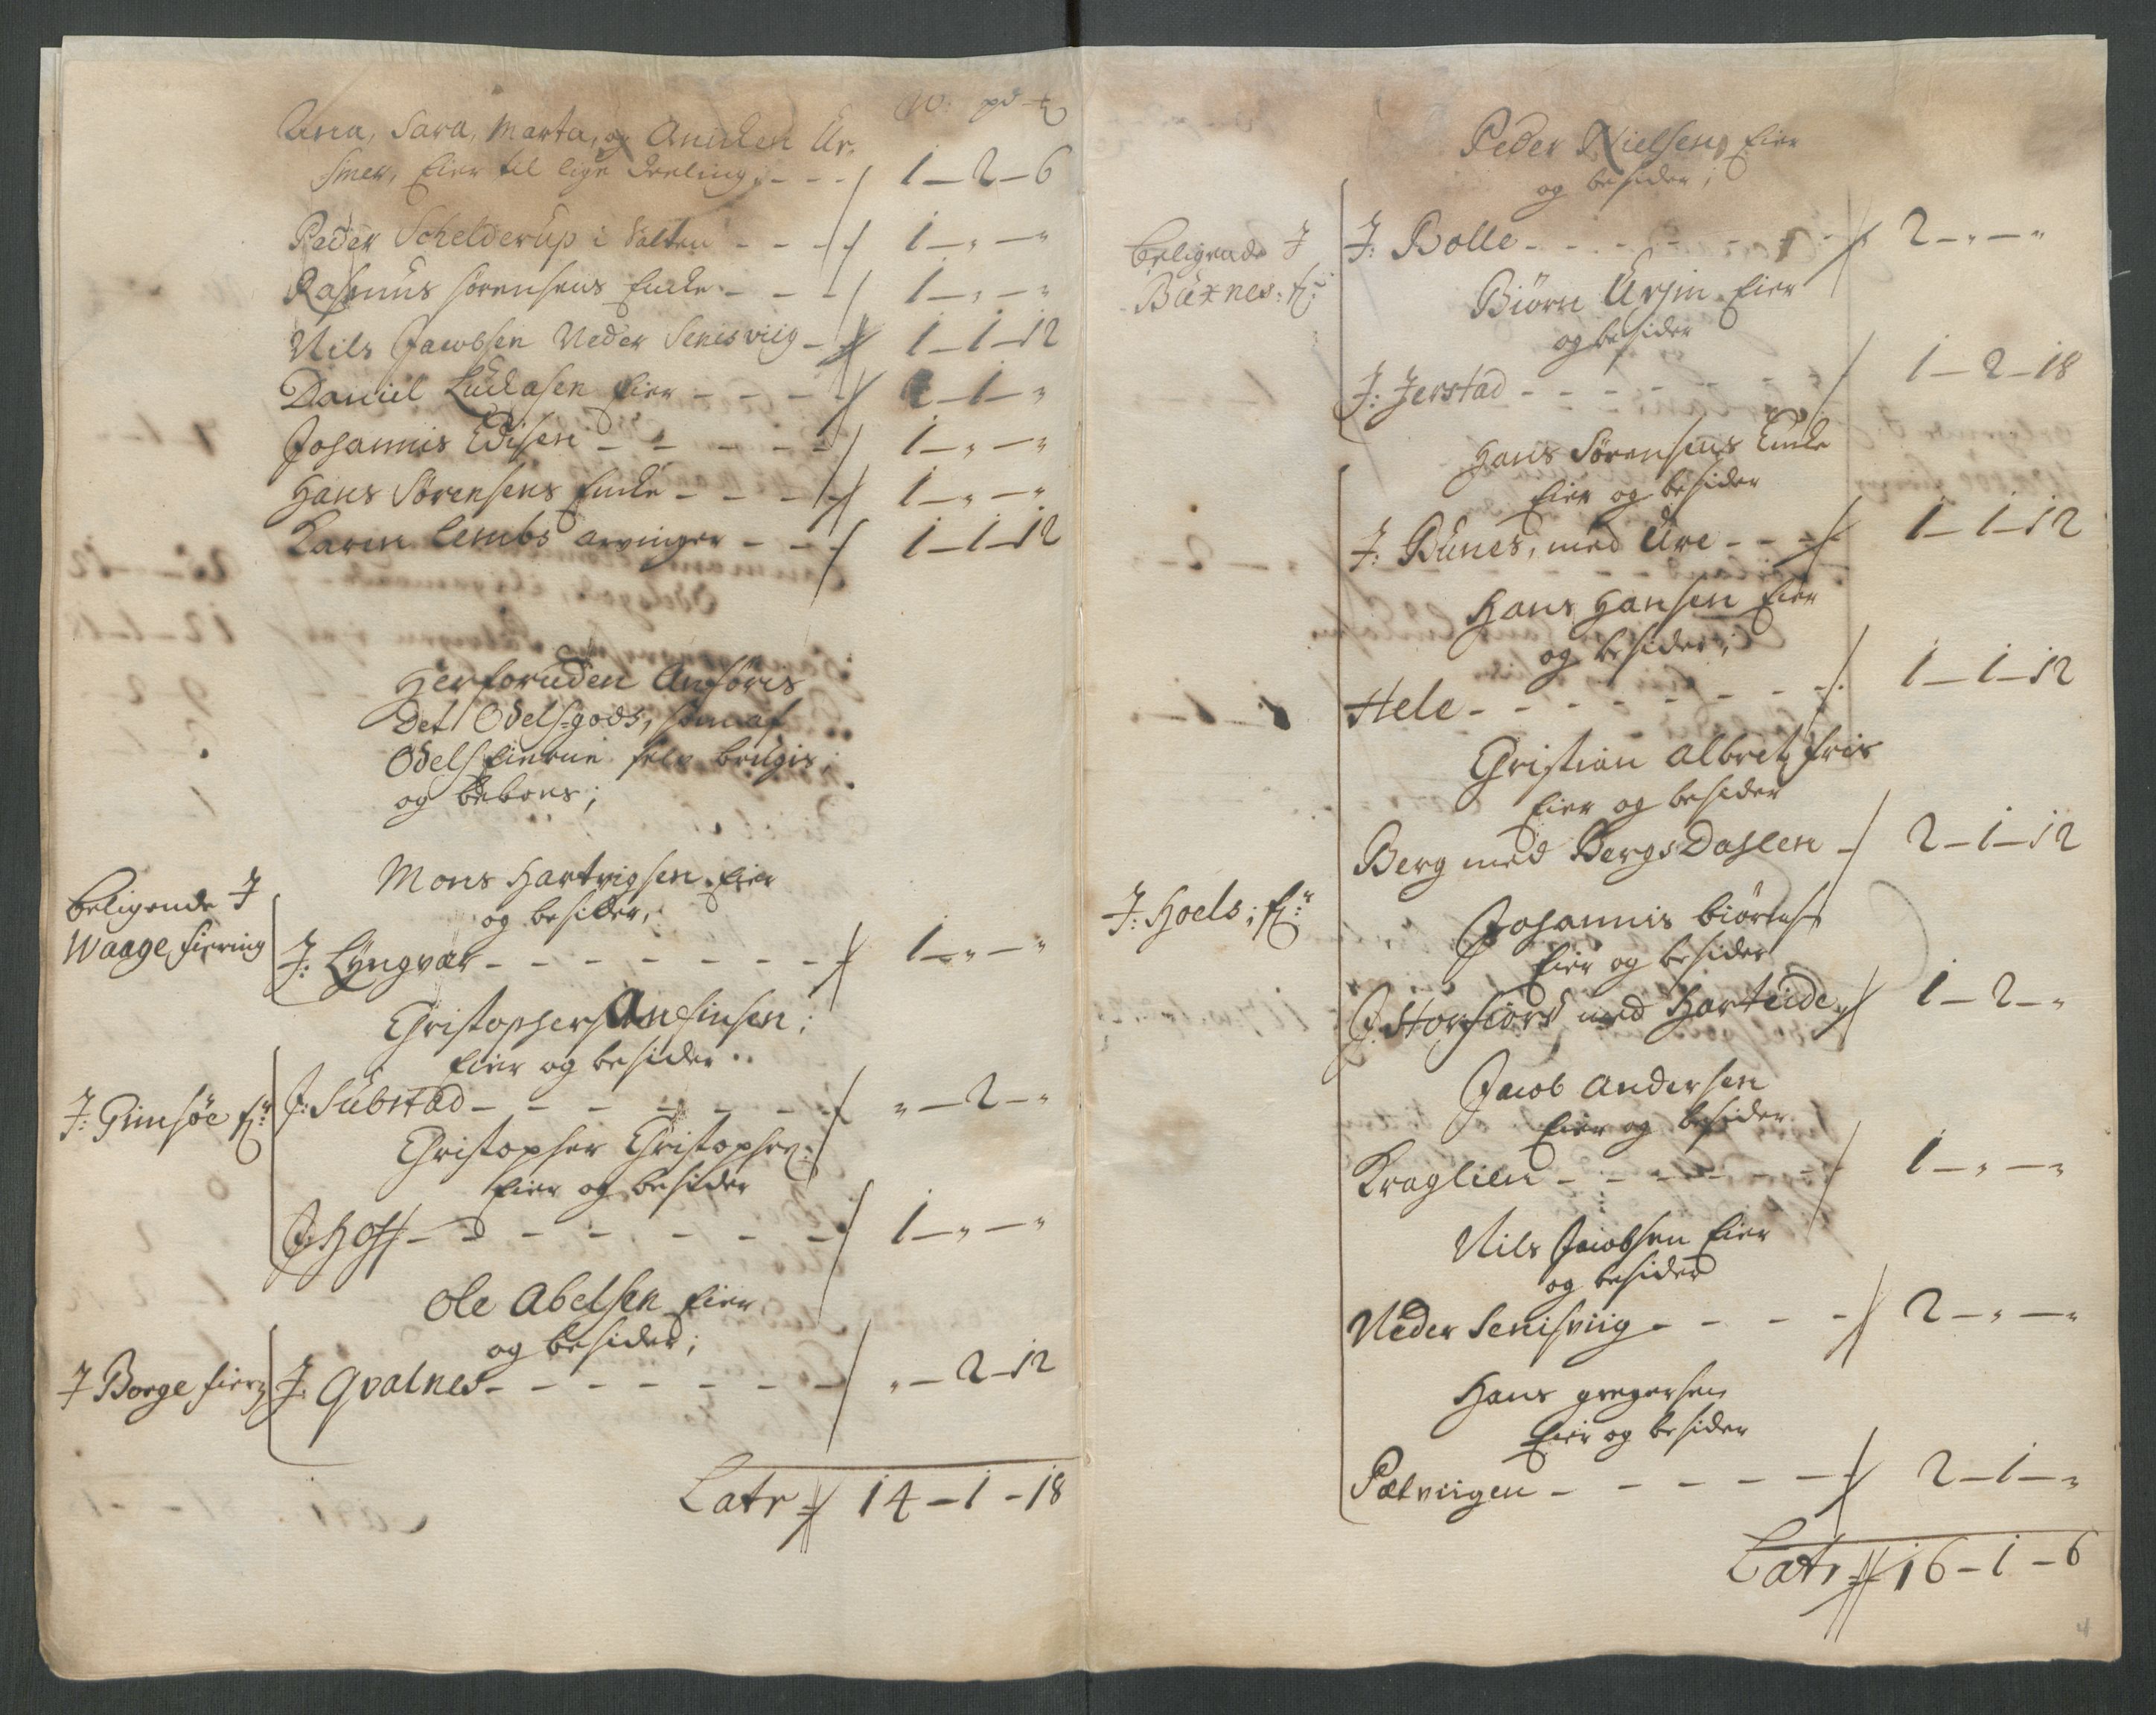 W: pd
Anna, Sara, Marta, og Anniken Ur-
smer, Eier til lige deeling, - - - / 1 - 2 - 6
Peder Schelderup i Salten - - - / 1 - „ - „
Rasmus Sørensens Encke - - - / 1 - „ - „
Nils Jacobsen Neder Senisviig - / 1 - 1 - 12
Daniel Ludasen Eier - - - - / - 1 - „
Johannis Edisen - - - - - / 1 - „ - „
Hans Sørensens Encke - - - / 1 - „ - „
Karen Lembs arvinger - - - / 1 - 1 - 12
Herforuden Anføris
Det Odelsgods, som af
Odels Eierne selv brugis,
og beboes;
Mons Hartvigsen Eier
og besidder,
beligende J
Waage fiering
J: Lyngvær - - - - - - - / 1 - „ - „
Christophers
Eier og besidder
J: Gimsøe fr:
J: Substad - - - - - - - / „ - 2 - „
Christopher Christophers:
Eier og besidder
J: Hoff - - - - - - - / 1 - „ - „
Ole Abelsen Eier
og besidder;
J Borge fierg
J: Qvalnes - - - - - - - / „ - 2 - 12
Latr / 14 - 1 - 18
Peder Nielsen, Eier
og besider;
beligende J
Buxnes: fr:
J: Bolle - - - - - - - / 2 - „ - „
Biørn Ursin Eier
og besider
J: Jerstad - - - - - - / 1 - 2 - 18
Hans Sørensens Encke
Eier og besider
J: Bunes, med Ure - - - / 1 - 1 - 12
Hans Hansen Eier
og besider;
Hele - - - - - - - / 1 - 1 - 12
Christian Albretz Friis
Eier og besider
Berg med Bergs Dahlen - / 2 - 1 - 12
J: Hoels; fr:
Johannis Biørns
Eier og besider
J. Storfiord med Harteide / 1 - 2 - „
Jacob Andersen
Eier og besider
Kraglien - - - - - - / 1 - „ - „
Nils Jacobsen Eier
og besider
Neder Senisviig - - - - / 2 - „ - „
Hans gregersen
Eier og besider
Pælviigen - - - - - / 2 - 1 - „
Latr / 16 - 1 - 6
4